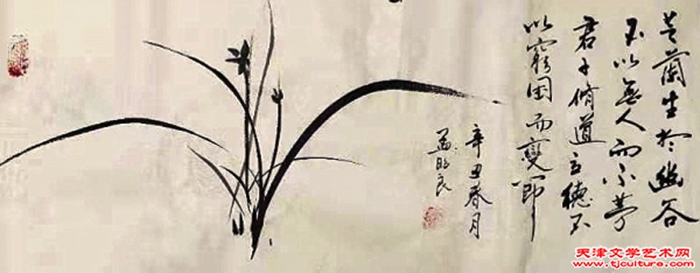 芝蘭生於幽谷
不以無人而不芳
君子脩道立德不
以窮困而變節
辛丑春月
孟昭良
天津文学艺术网
www.tjculture.com